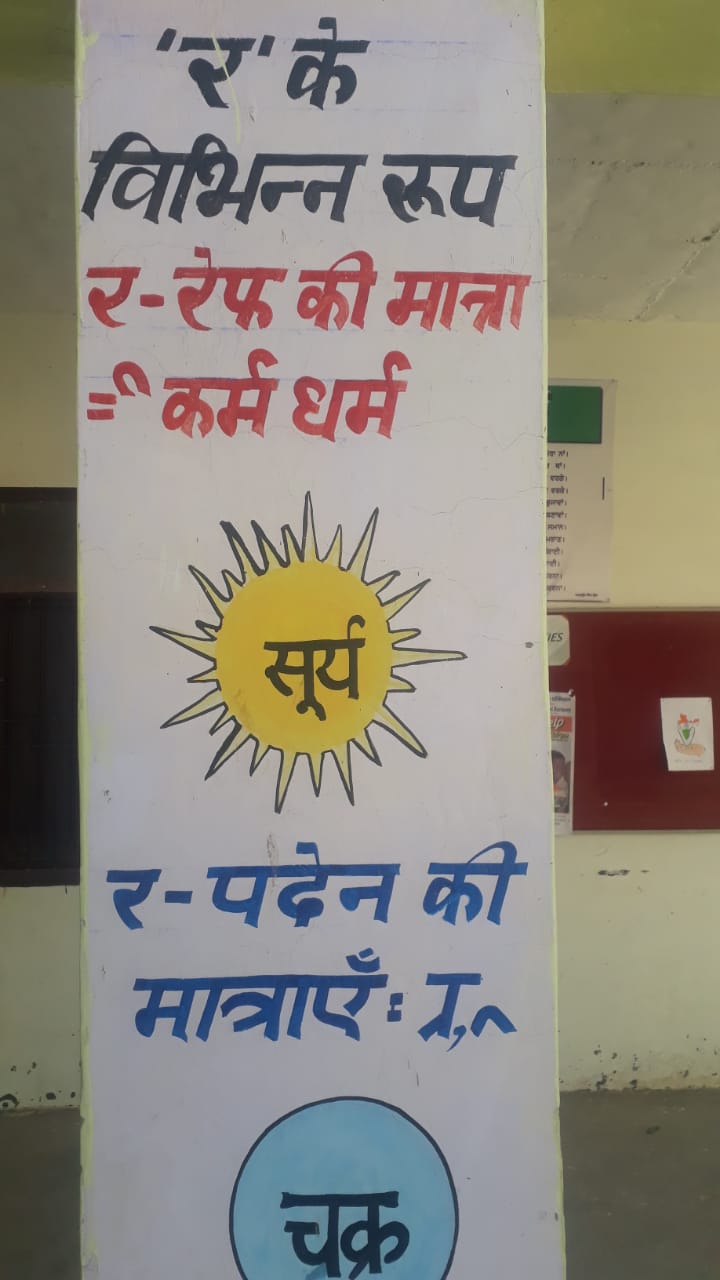 'र' के
विभिन्न रूप
र-रेफ की मात्रा
= र्  कर्म धर्म
सूर्य
र-पदेन की
मात्राएँ : ्र,^
चक्र